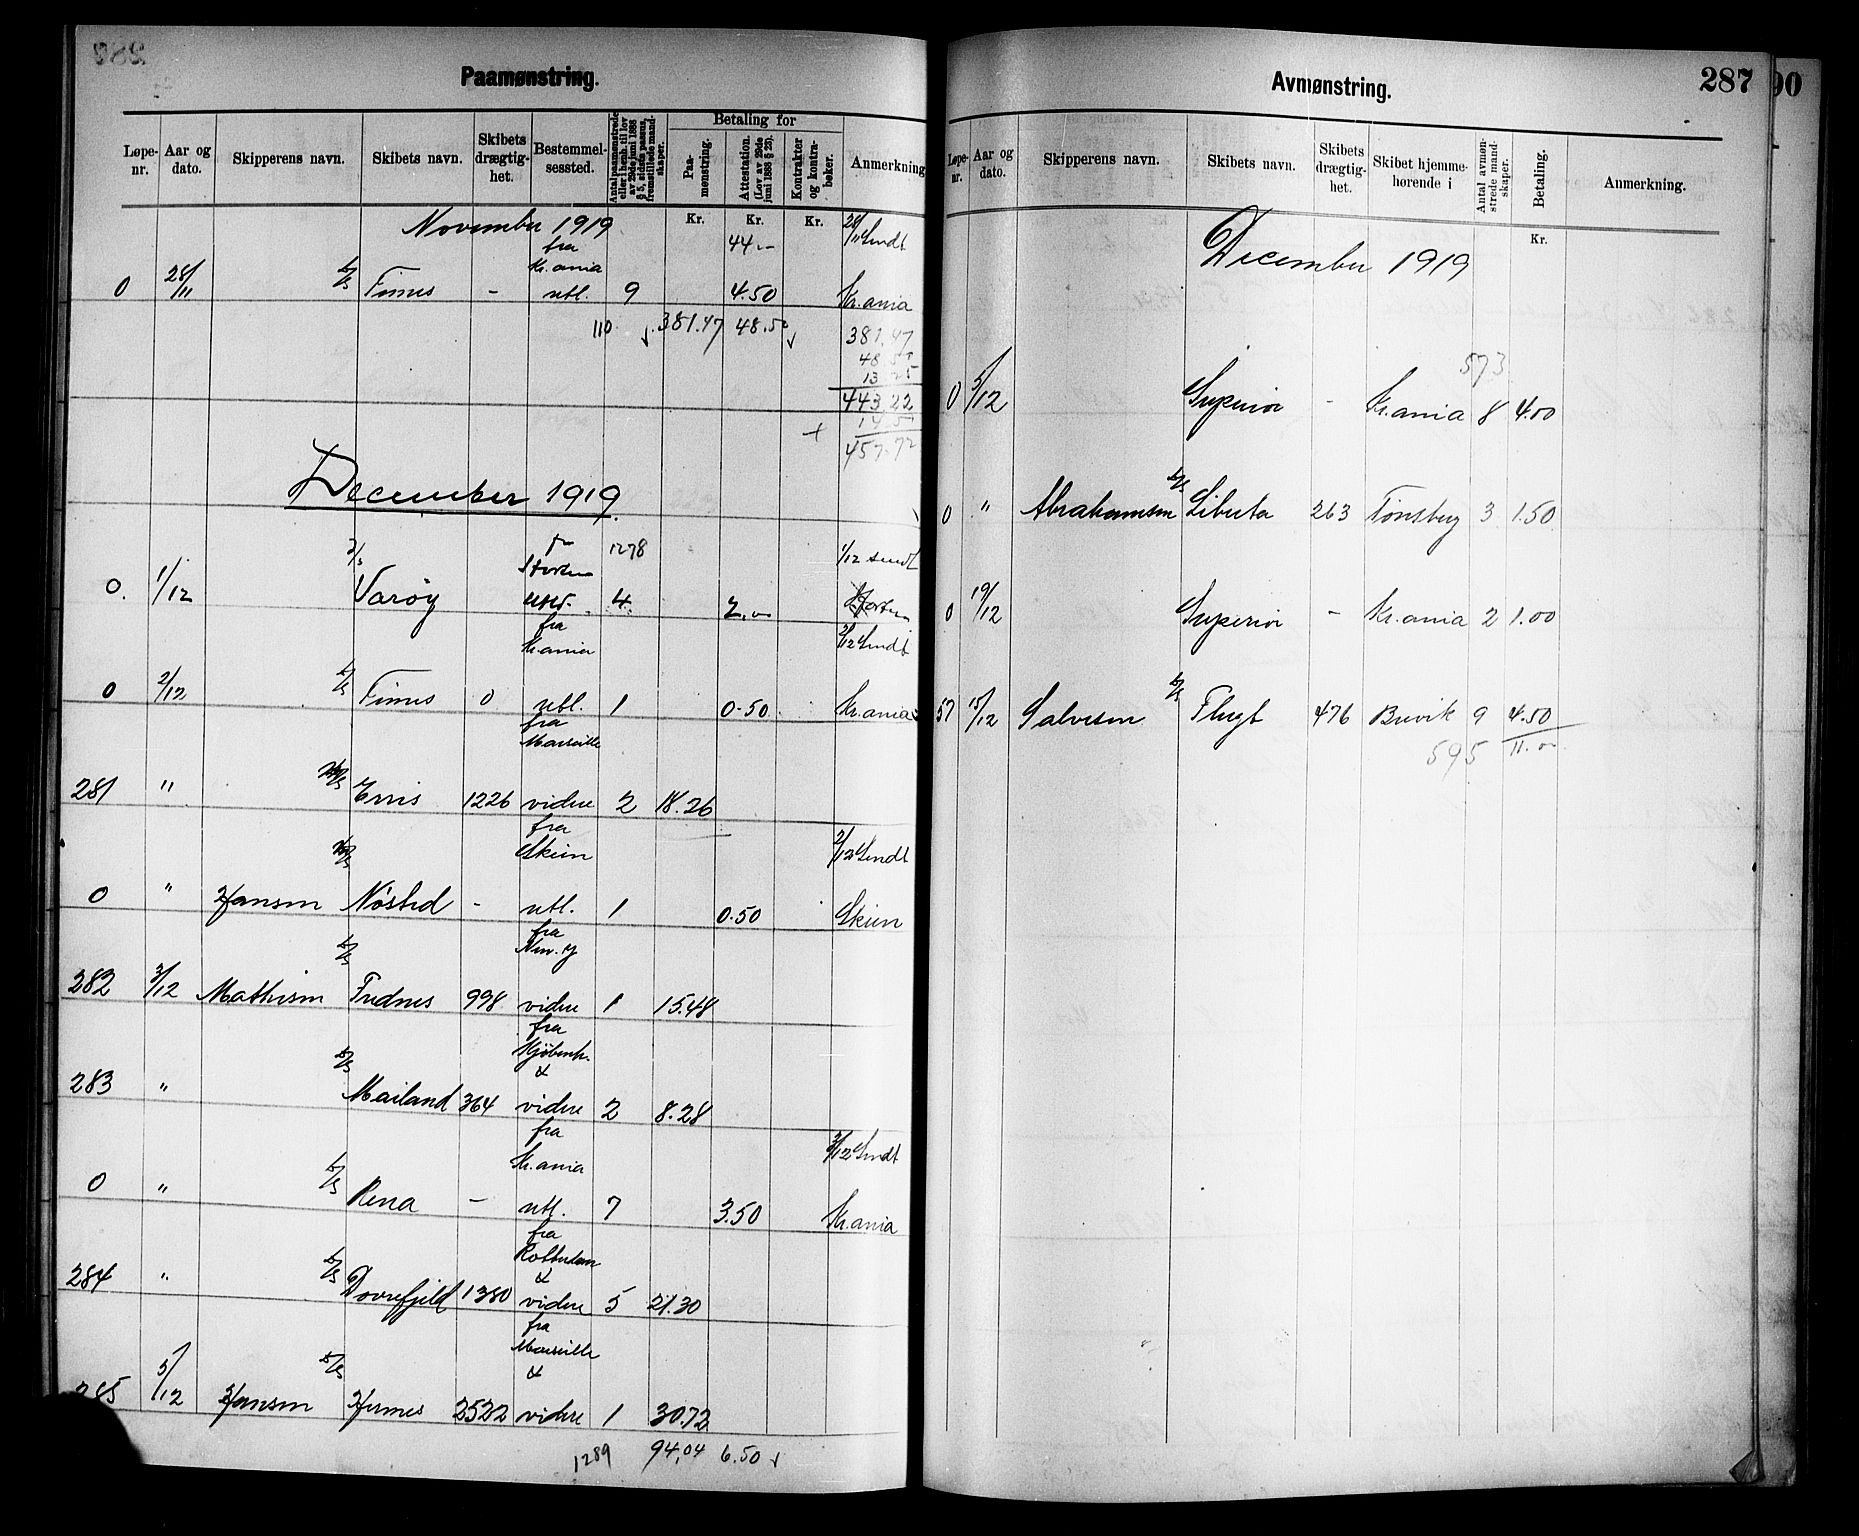 Paamønstring.
Løpe-nr. Aar og dato. Skipperens navn. Skibets navn. Skibets drægtig-het. Bestemmel-sessted. Antal paamønstrede eller i henh. til lov av 29de juni 1888 § 5, sidste passus, fremstillede mand-skaper. Betaling for Paa-mønstring. Attestation. (Lov av 29de juni 1888 § 23). Kontrakter og kontra-bøker. Anmerkning
Kr. Kr. Kr.
November 1919
fra 44.-
Kr.ania
0 28/11 Finnes - utl. 9 4.50 Kr.ania
110 381.47 48.50
381,47
48 50
13 25
443,22
14 50
+ 457.72
December 1919.
1278 1/12 sendt
0. 1/12 Varøy 4 2.-
fra
Kr.ania 2/12 Sendt
0 2/12 Finnes 0 utl. 1 0.50 Kr.ania
fra
Marseille
281 " Erris 1226 videre 2 18.26
fra
Skien 2/12 Sendt
0 " Hansen Nøsted - utl. 1 0.50 Skien
fra
New.y
282 3/12 Mathisen Fridnes 998 videre 1 15.48
fra
Kjøbenh.
&
283 " Mailand 364 videre 2 8.28
fra
Kr.ania 3/12 Sendt
0 " Rena - utl. 7 3.50 Kr.ania
fra
Rotterdam
&
284 " Dovrefjeld 1380 videre 5 21.30
fra
Marseille
&
285 5/12 Hansen Hermes 2522 videre 1 30.72
1289 94,04 6.50
Avmønstring. 287
Løpe-nr. Aar og dato. Skipperens navn. Skibets navn. Skibets drægtig-het. Skibet hjemme-hørende i Antal avmøn-strede mand-skaper. Betaling. Anmerkning.
Kr.
December 1919
573
0 5/12 Superior - Kr.ania 8 4.00
0 " Abrahamsen Liberta 263 Tønsberg 3 1.50
0 10/12 Superior - Kr.ania 2 1.00
57 15/12 Salvesen Flugt 476 Brevik 9 4.50
595 11.-
90